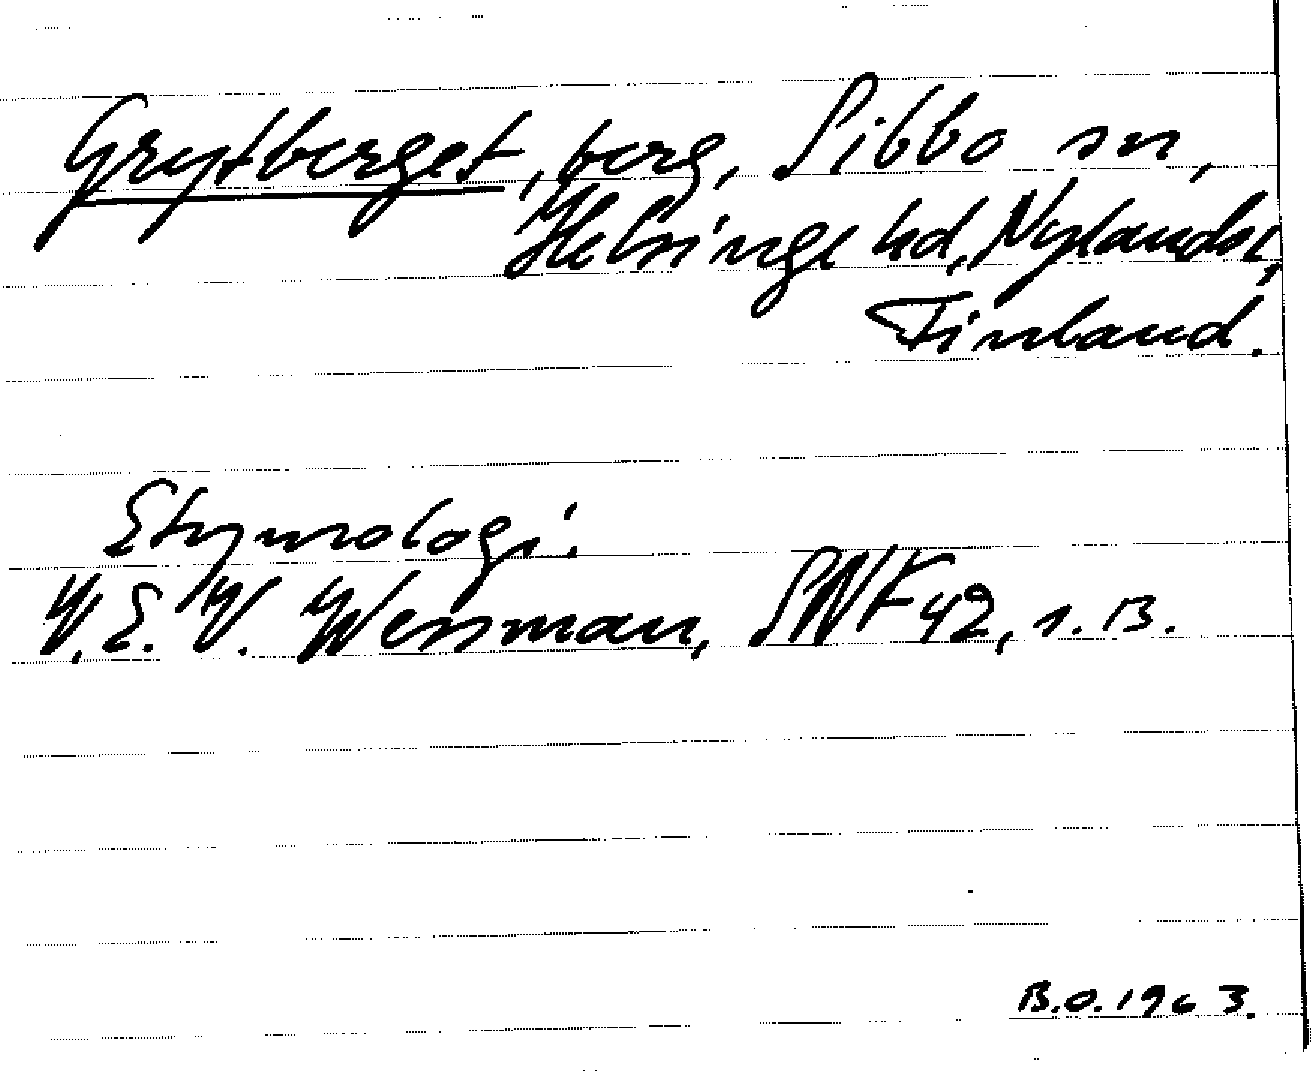 Grytberget, berg, Sibbo sn,
Helsinge hd, Nylands l,
Finland.
Etymologi:
V.E.V. Wessman, SNF 42, s. 13.
B.O. 1963.